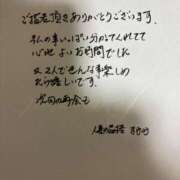 ご指名頂きありがとうございます。
私の事いっぱい分かってくれてて
心地よいお時間でした
又2人で色んな事楽しめ
たら嬉しいです。
次回の再会も
人妻の品格